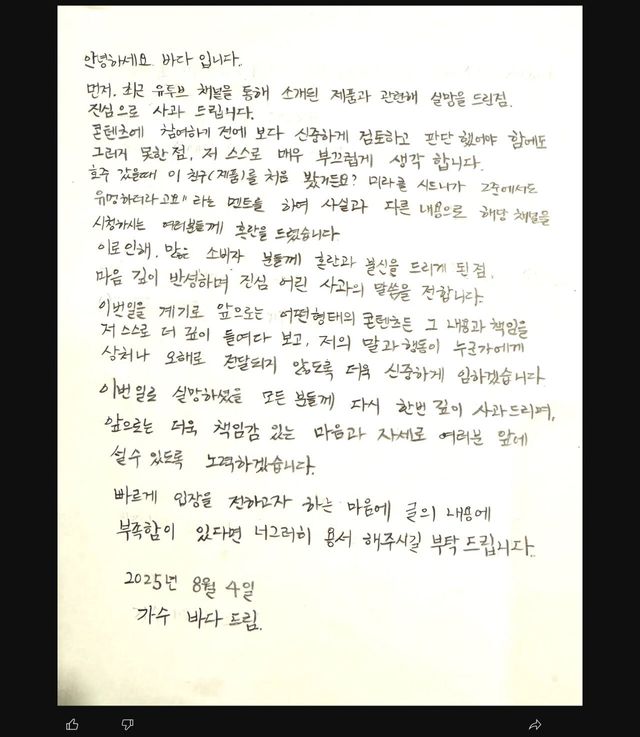 안녕하세요 바다 입니다.
먼저, 최근 유투브 채널을 통해 소개된 제품과 관련해 실망을 드린점.
진심으로 사과 드립니다.
콘텐츠에 참여하기 전에 보다 신중하게 검토하고 판단 했어야 함에도
그러지 못한 점, 저 스스로 매우 부끄럽게 생각 합니다.
호주 갔을때 이 친구(제품)를 처음 봤거든요? 미라클 시드니가 2존에서도
유명하더라고요" 라는 멘트를 하여 사실과 다른 내용으로 해당 채널을
시청하시는 여러분들께 혼란을 드렸습니다
이로인해, 많은 소비자 분들께 혼란과 불신을 드리게 된 점,
마음 깊이 반성하며 진심 어린 사과의 말씀을 전합니다.
이번일을 계기로 앞으로는 어떤형태의 콘텐츠든 그 내용과 책임을
저 스스로 더 깊이 들여다 보고, 저의 말과 행동이 누군가에게
상처나 오해로 전달되지 않도록 더욱 신중하게 임하겠습니다.
이번 일로 실망하셨을 모든 분들께 다시 한번 깊이 사과드리며,
앞으로는 더욱 책임감 있는 마음과 자세로 여러분 앞에
설 수 있도록 노력하겠습니다.
빠르게 입장을 전하고자 하는 마음에 글의 내용에
부족함이 있다면 너그러히 용서 해주시길 부탁 드립니다.
2025년 8월 4일
가수 바다 드림.